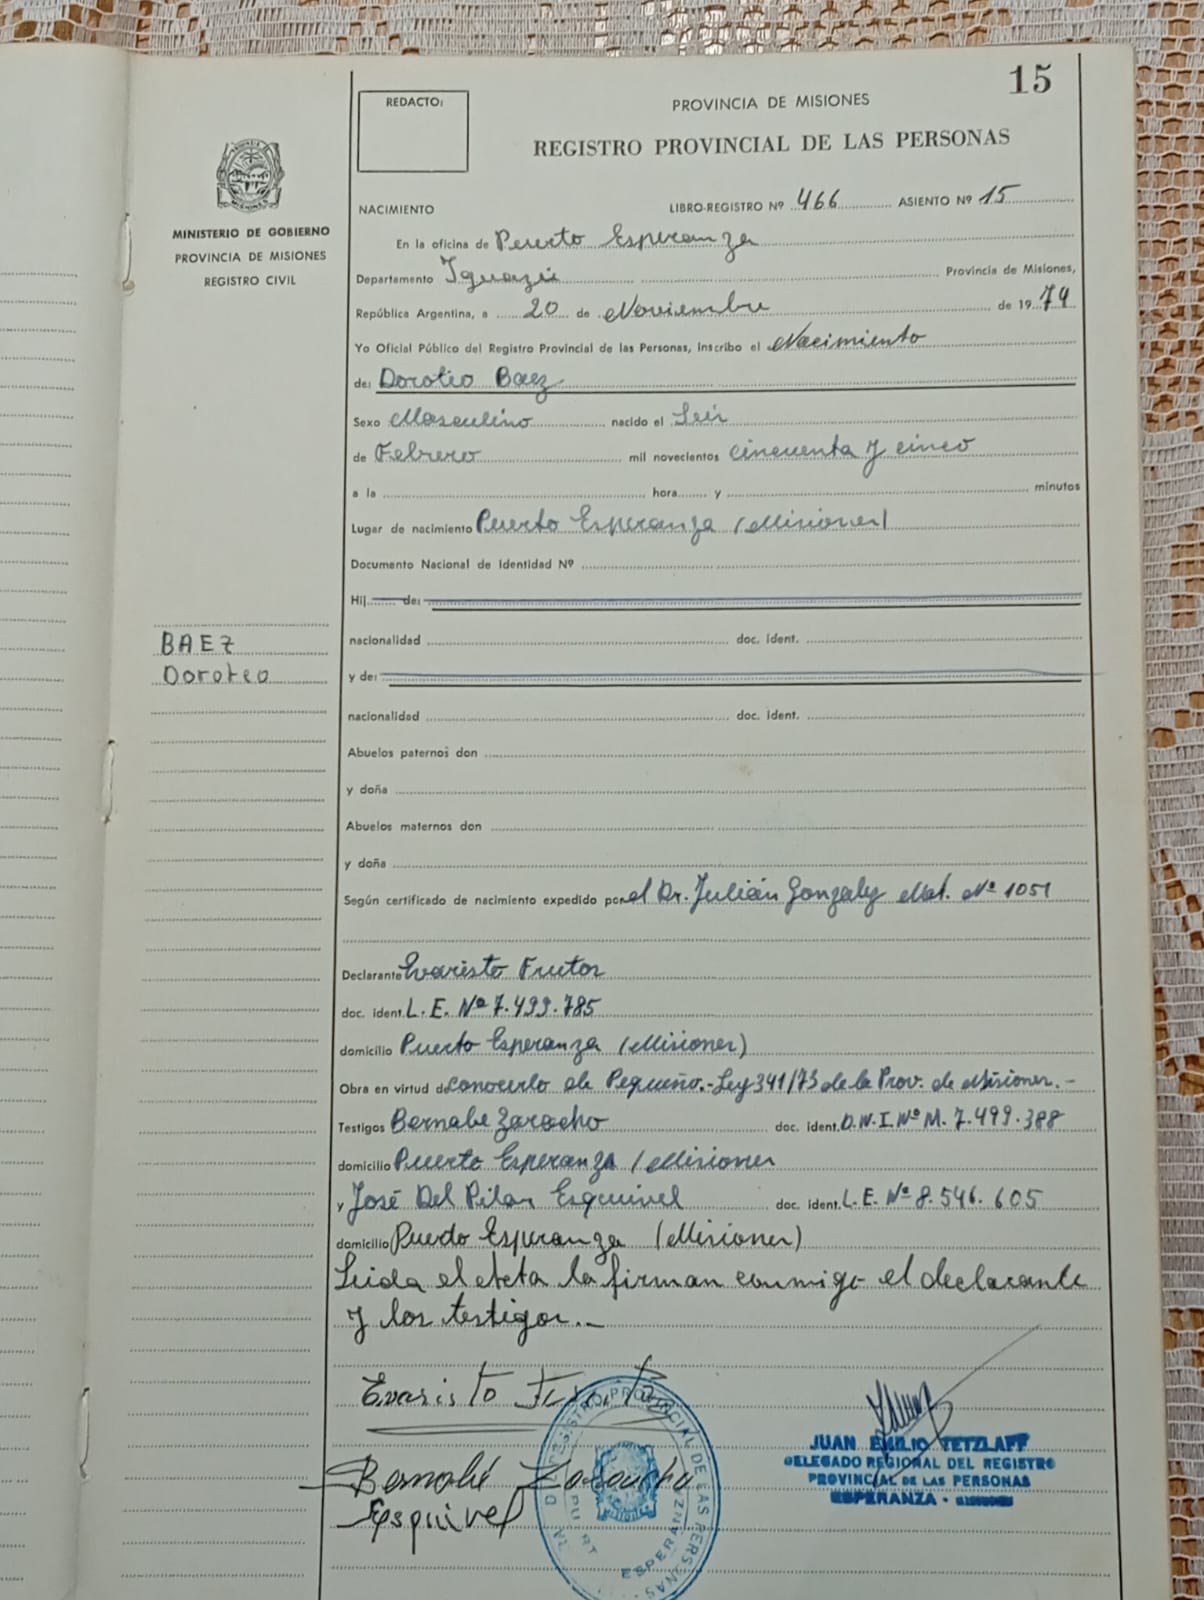 15
REDACTO:
PROVINCIA DE MISIONES
REGISTRO PROVINCIAL DE LAS PERSONAS
MINISTERIO DE GOBIERNO
PROVINCIA DE MISIONES
REGISTRO CIVIL
NACIMIENTO LIBRO-REGISTRO Nº 466 ASIENTO Nº 15
En la oficina de Puerto Esperanza
Departamento Iguazú Provincia de Misiones,
República Argentina, a 20 de Noviembre de 1974
Yo Oficial Público del Registro Provincial de las Personas, inscribo el Nacimiento
de: Doroteo Baez
Sexo Masculino nacido el Seis
de Febrero mil novecientos cincuenta y cinco
a la hora y minutos
Lugar de nacimiento Puerto Esperanza (Misiones)
Documento Nacional de Identidad Nº
Hij de:
BAEZ
Doroteo
nacionalidad doc. ident.
y de:
nacionalidad doc. ident.
Abuelos paternos don
y doña
Abuelos maternos don
y doña
Según certificado de nacimiento expedido por el Dr. Julián Gonzalez Mat. Nº 1051
Declarante Evaristo Frutos
doc. ident. L. E. Nº 7.499.785
domicilio Puerto Esperanza (Misiones)
Obra en virtud de conocerlo de Pequeño.- Ley 341/73 de la Prov. de Misiones.-
Testigos Bernabe Zaracho doc. ident. D.N.I. Nº M. 7.499.388
domicilio Puerto Esperanza (Misiones
y José Del Pilar Esquivel doc. ident. L. E. Nº 8.546.605
domicilio Puerto Esperanza (Misiones)
Leida el Acta la firman conmigo el declarante
y los testigos.-
Evaristo
Bernabé
Esquivel
REGISTRO PROVINCIAL DE LAS PERSONAS
ESPERANZA
JUAN EMILIO TETZLAFF
DELEGADO REGIONAL DEL REGISTRO
PROVINCIAL DE LAS PERSONAS
ESPERANZA - MISIONES